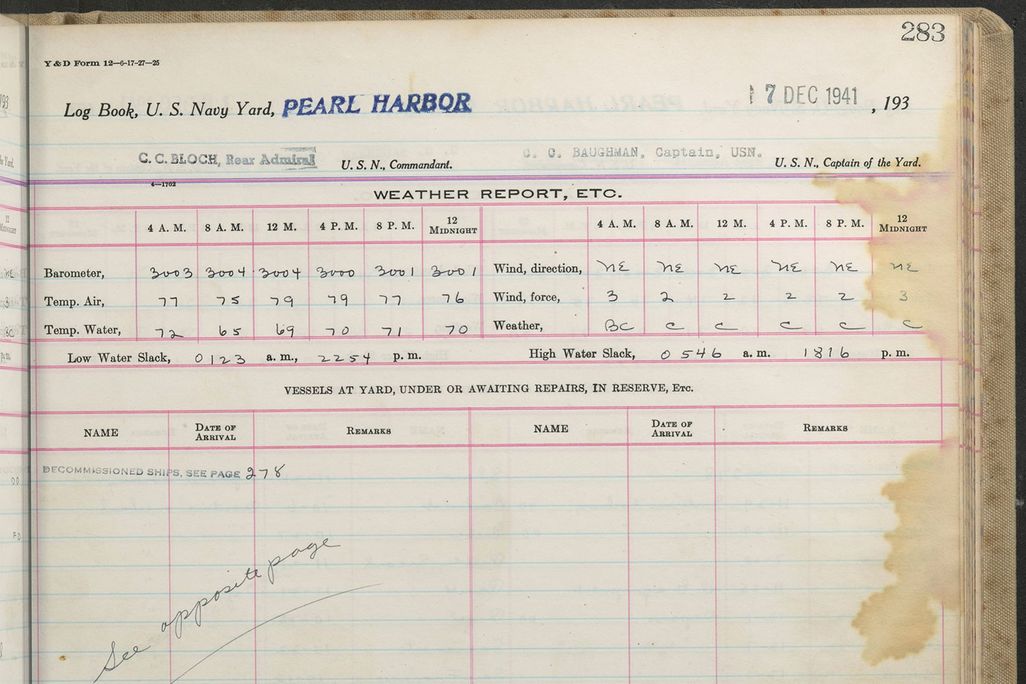 283
Y & D Form 12—6-17-27—25
Log Book, U. S. Navy Yard, PEARL HARBOR 17 DEC 1941, 193
C. C. BLOCH, Rear Admiral U. S. N., Commandant. C. C. BAUGHMAN, Captain, USN. U. S. N., Captain of the Yard.
4—1702
WEATHER REPORT, ETC.
4 A. M. 8 A. M. 12 M. 4 P. M. 8 P. M. 12 MIDNIGHT 4 A. M. 8 A. M. 12 M. 4 P. M. 8 P. M. 12 MIDNIGHT
Barometer, 3003 3004 3004 3000 3001 3001 Wind, direction, NE NE NE NE NE NE
Temp. Air, 77 75 79 79 77 76 Wind, force, 3 2 2 2 2 3
Temp. Water, 72 65 69 70 71 70 Weather, BC C C C C C
Low Water Slack, 0123 a. m., 2254 p. m. High Water Slack, 0546 a. m. 1816 p. m.
VESSELS AT YARD, UNDER OR AWAITING REPAIRS, IN RESERVE, Etc.
NAME DATE OF ARRIVAL REMARKS NAME DATE OF ARRIVAL REMARKS
DECOMMISSIONED SHIPS, SEE PAGE 278
See opposite page